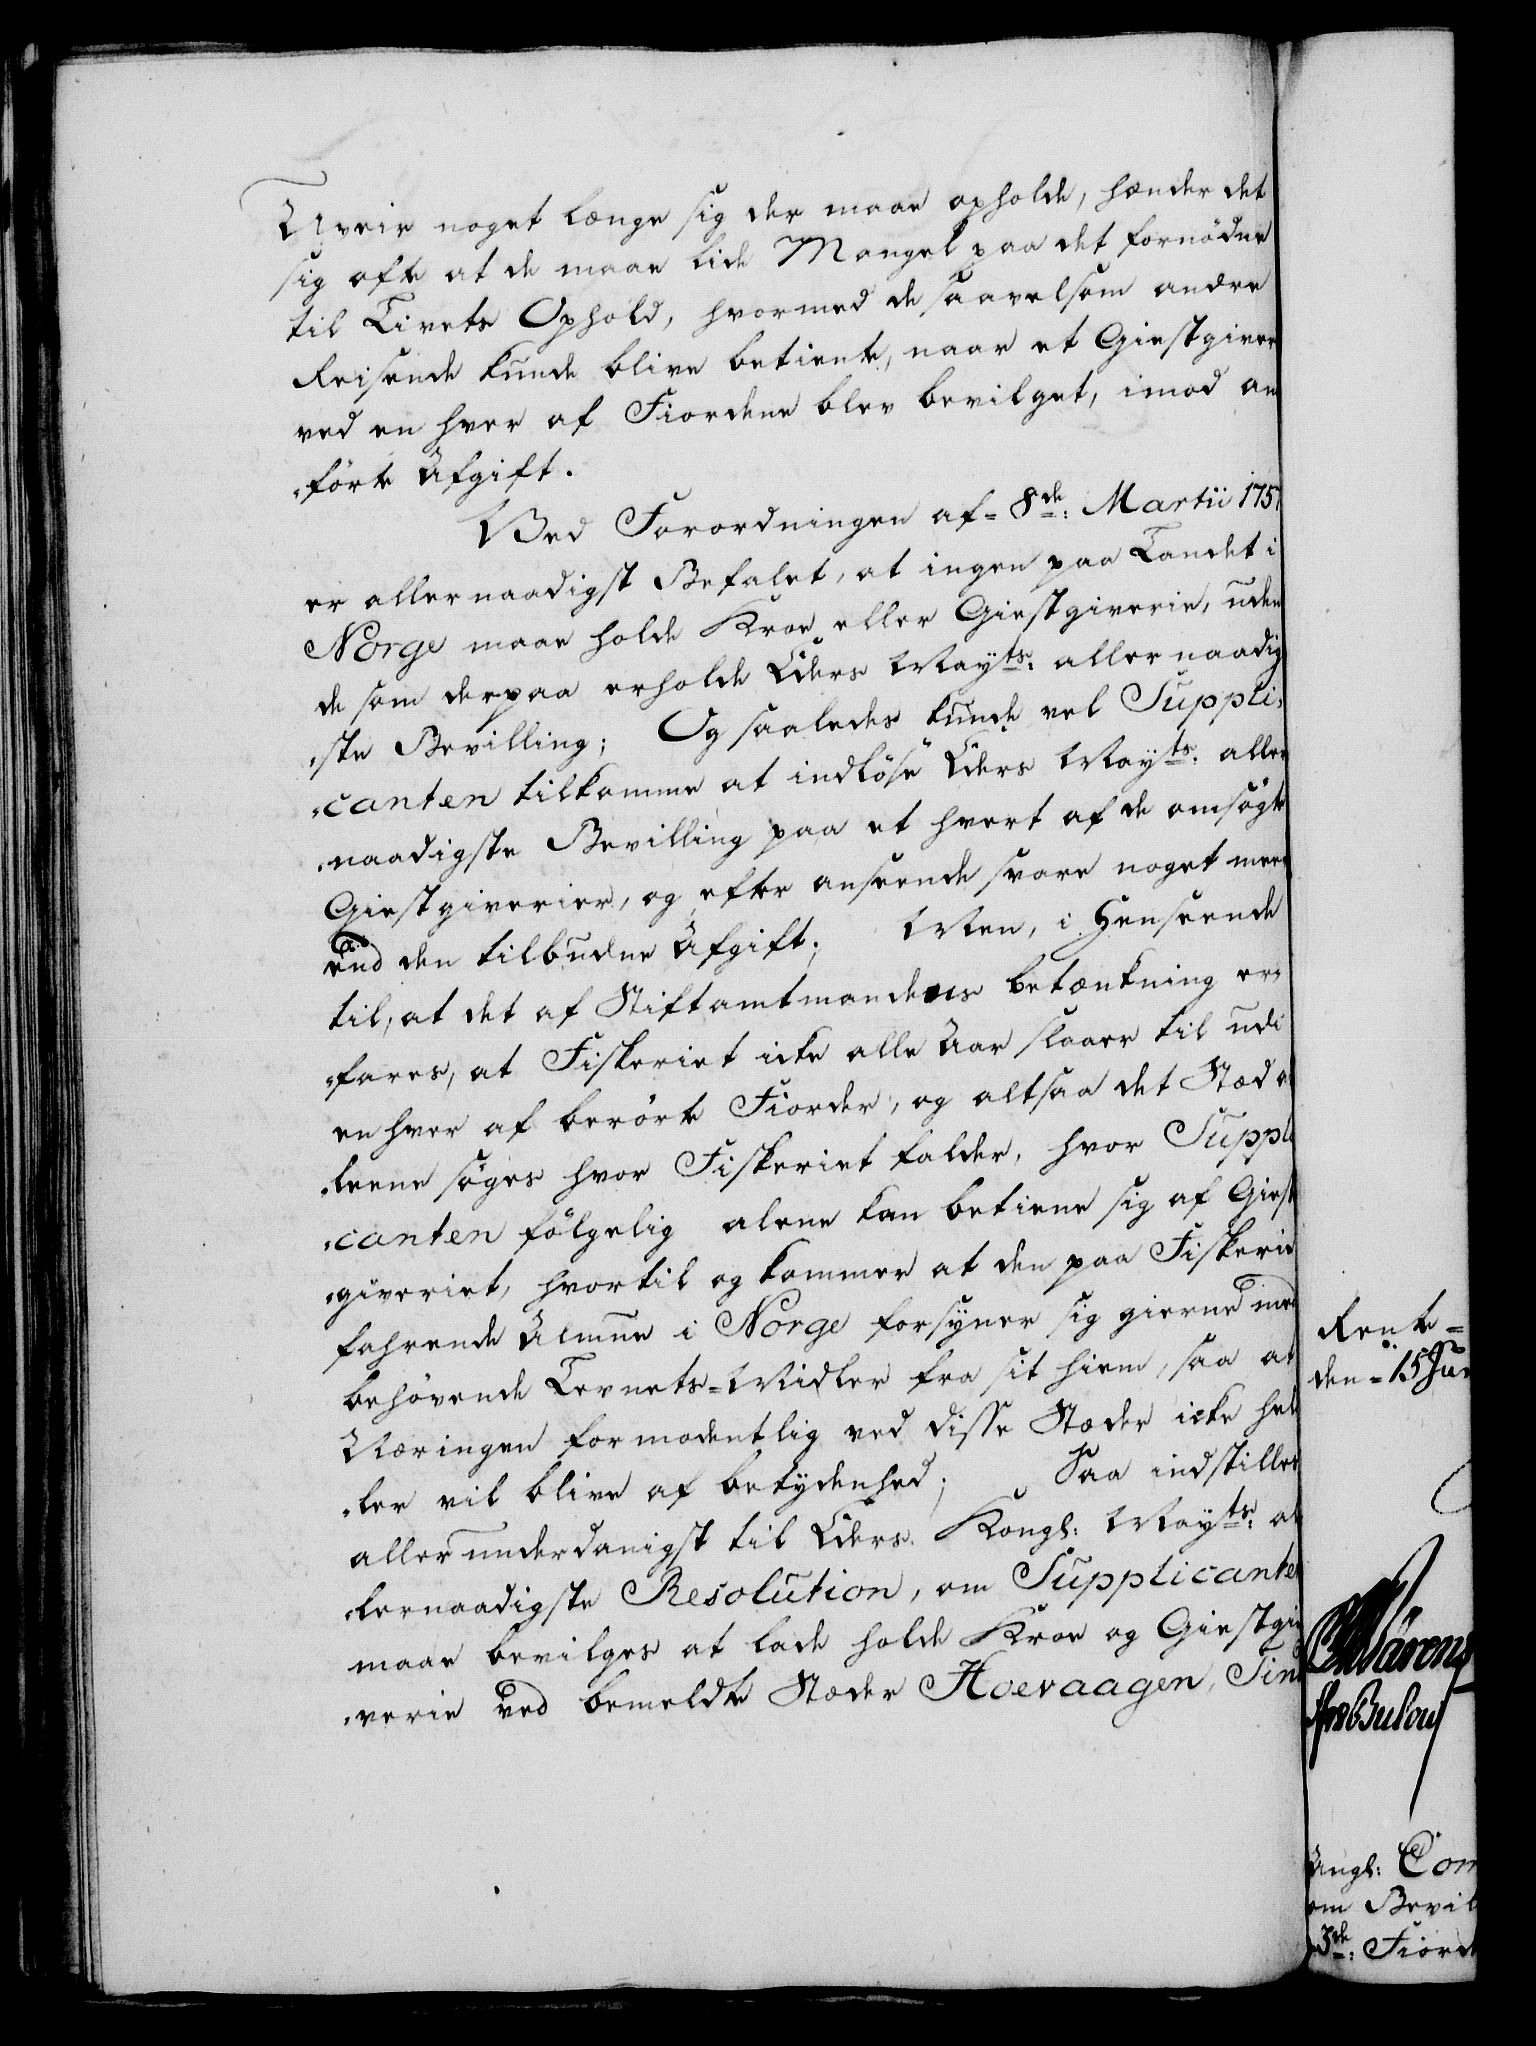 Uveir noget længe sig der maae opholde, hænder det
sig ofte at de maae lide Mangel paa det fornødne
til Livets Ophold, hvormed de saavelsom andre
Reisende kunde blive betiente, naar et Giestgiver
ved en hver af Fiordene blev bevilget, imod an
„førte Afgift.
Ved Forordningen af 8de: Martii 1757
er allernaadigst Befalet, at ingen paa Landet i
Norge maae holde Kroe eller Giestgiverie, uden
de som derpaa erholde Eders Mayts: allernaadig
„ste Bevilling; Og saaledes kunde vel Suppli„
„canten tilkomme at indløse Eders Mayts: aller
„naadigste Bevilling paa et hvert af de omsøgte
Giestgiverier, og efter anseende svare noget meer
end den tilbudne Afgift; Men, i Henseende
til, at det af Stiftamtmandens betænkning er„
„fares, at Fiskeriet icke alle Aar slaaer til udi
en hver af berørte Fiorder, og altsaa det Stæd a
„leene søges hvor Fiskeriet falder, hvor Suppli
„canten følgelig alene kan betiene sig af Giest
„giveriet, hvortil og kommer at den paa Fiskerie
fahrende Almue i Norge forsyner sig gierne med
behøvende Levnets-Midler fra sit hiem, saa at
Næringen formodentlig ved disse Stæder icke hel
„ler vil blive af betydenhed; Saa indstilles
allerunderdanigst til Eders Kongl: Mayts: al
„lernaadigste Resolution, om Supplicanten
maae bevilges at lade holde Kroe og Giestgi
„verie ved bemeldte Stæder Hoevaagen, Sin
Rente=
den= 15 Jun
Bulow
Angl: Com
om Bevil
3de: Fiord